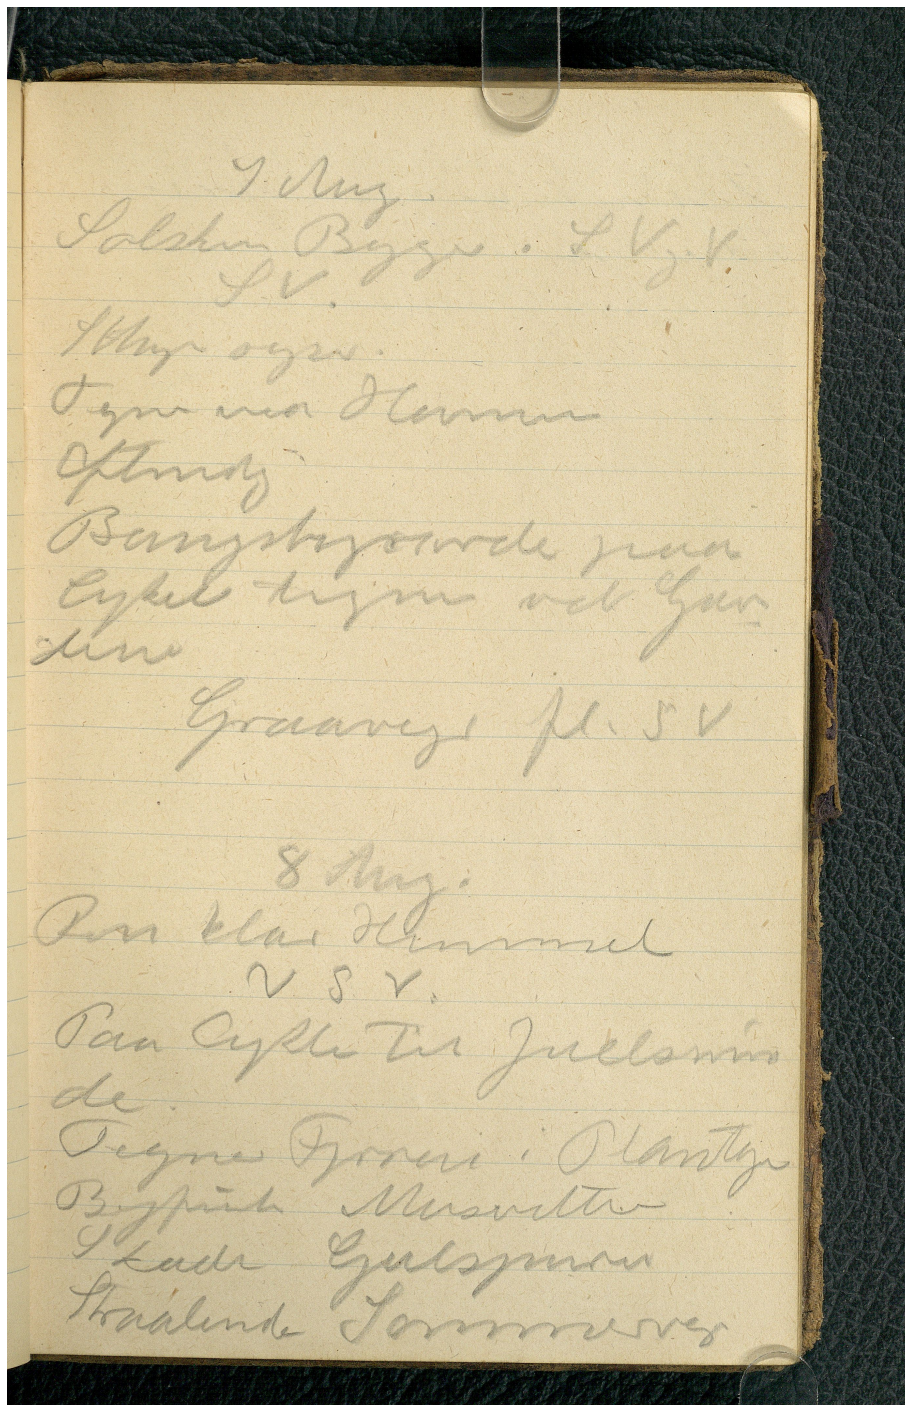 7 Aug.
Solskin Byger. S V g. V
S V.
Tegne ved Havnen
Eftmdg
Bangsbogaarde paa
Cykel tegne ved Gaar
dene
Graavejr fl. S V
8 Aug.
Ren klar Himmel
V S V.
Paa Cykle til Juelsmin
de.
Tegne Fyrren i Plantge
Musvitter
Skade Gulspurve
Straalende Sommervejr